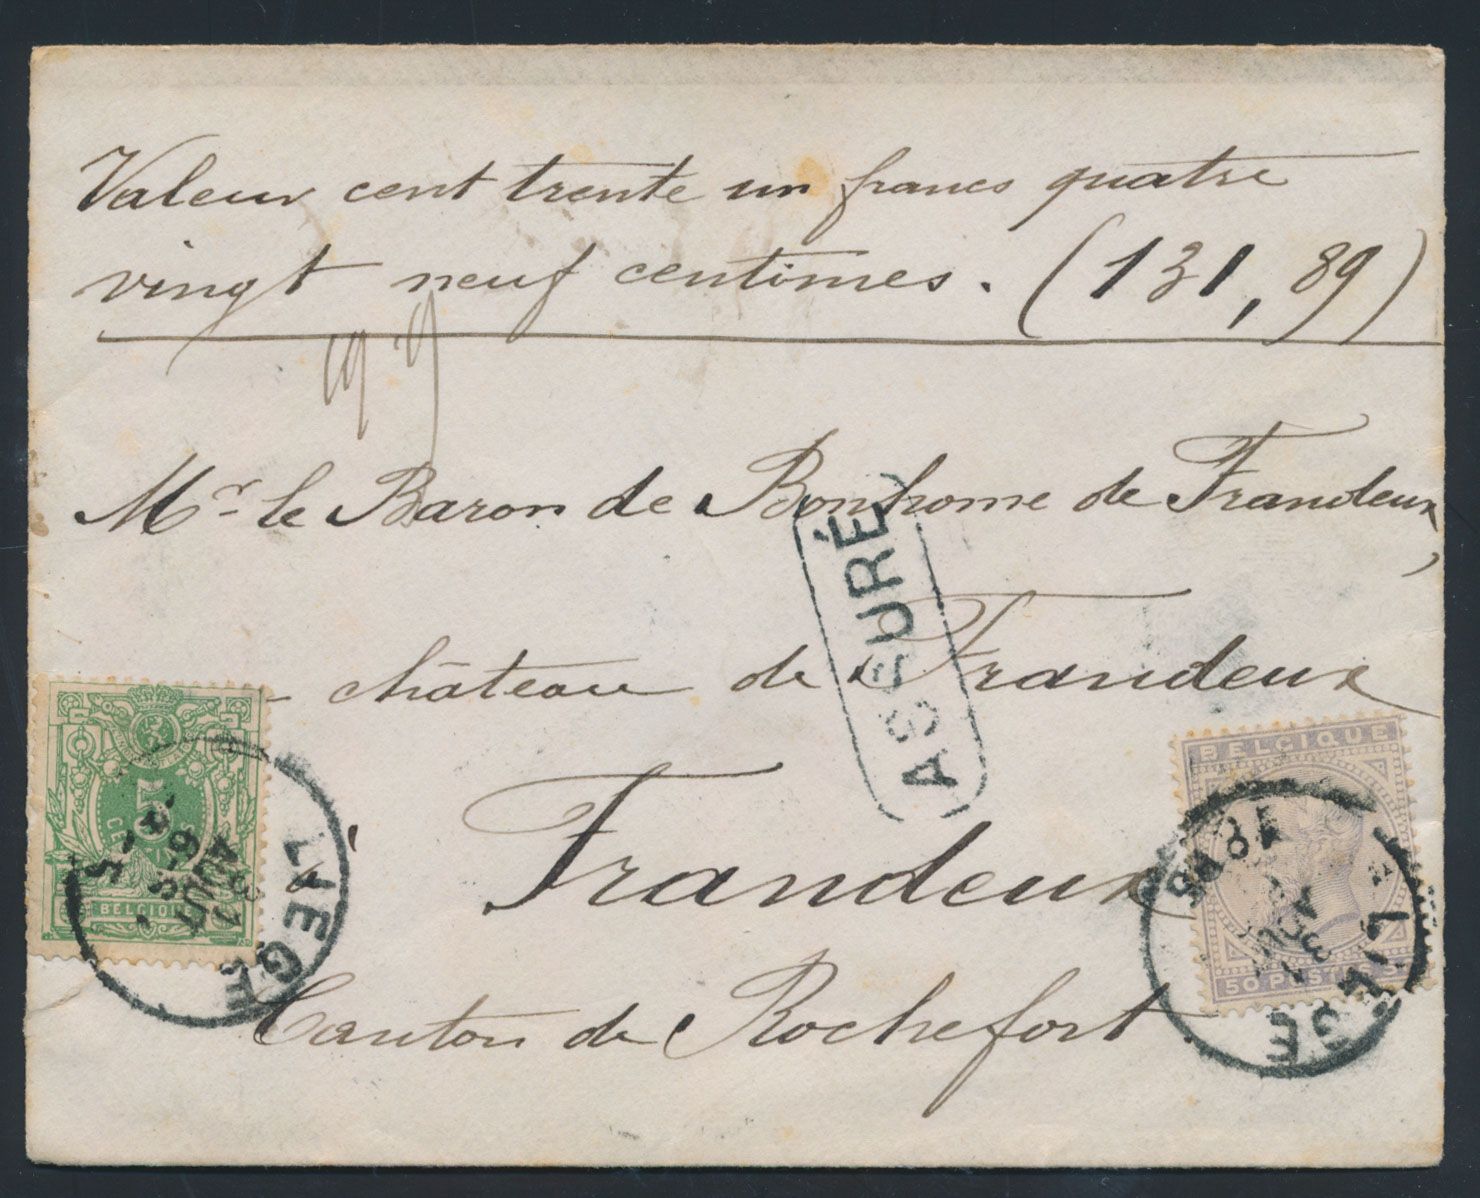 Valeur cent trente un francs quatre
vingt neuf centimes. (131,89)
Mr le Baron de Bonhome de Frandeux,
ASSURÉ
château de Frandeux
à Frandeux
Canton de Rochefort
5
CE
BELGIQUE
LIEGE
31
AOUT
BELGIQUE
50 POSTES
LIEGE
31
AOUT